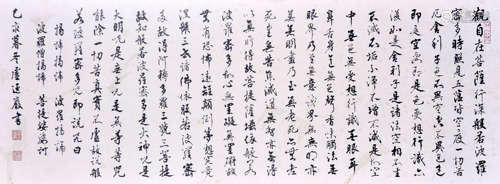 觀自在菩薩行深般若波羅
蜜多時照見五蘊皆空度一切苦
厄舍利子色不異空空不異色色
即是空空即是色受想行識亦
復如是舍利子是諸法空相不生
不滅不垢不淨不增不減是故空
中無色無受想行識無眼耳
鼻舌身意無色聲香味觸法無
眼界乃至無意識界無無明亦
無無明盡乃至無老死亦無老
死盡無苦集滅道無智亦無得
以無所得故菩提薩埵依般若
波羅蜜多故心無罣礙無罣礙故
無有恐怖遠離顛倒夢想究竟
涅槃三世諸佛依般若波羅蜜
多故得阿耨多羅三藐三菩提
故知般若波羅蜜多是大神咒是
大明咒是無上咒是無等等咒
能除一切苦真實不虛故說般
若波羅蜜多咒即說咒曰
揭諦揭諦 波羅揭諦
波羅僧揭諦 菩提薩婆訶
書